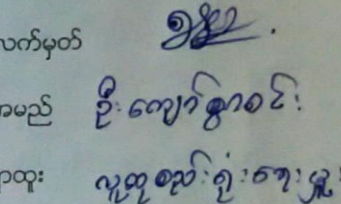 လက်မှတ်
အမည် ဦးကျော်စွာဝင်း
ရာထူး လူထုစည်းရုံးရေးမှူး